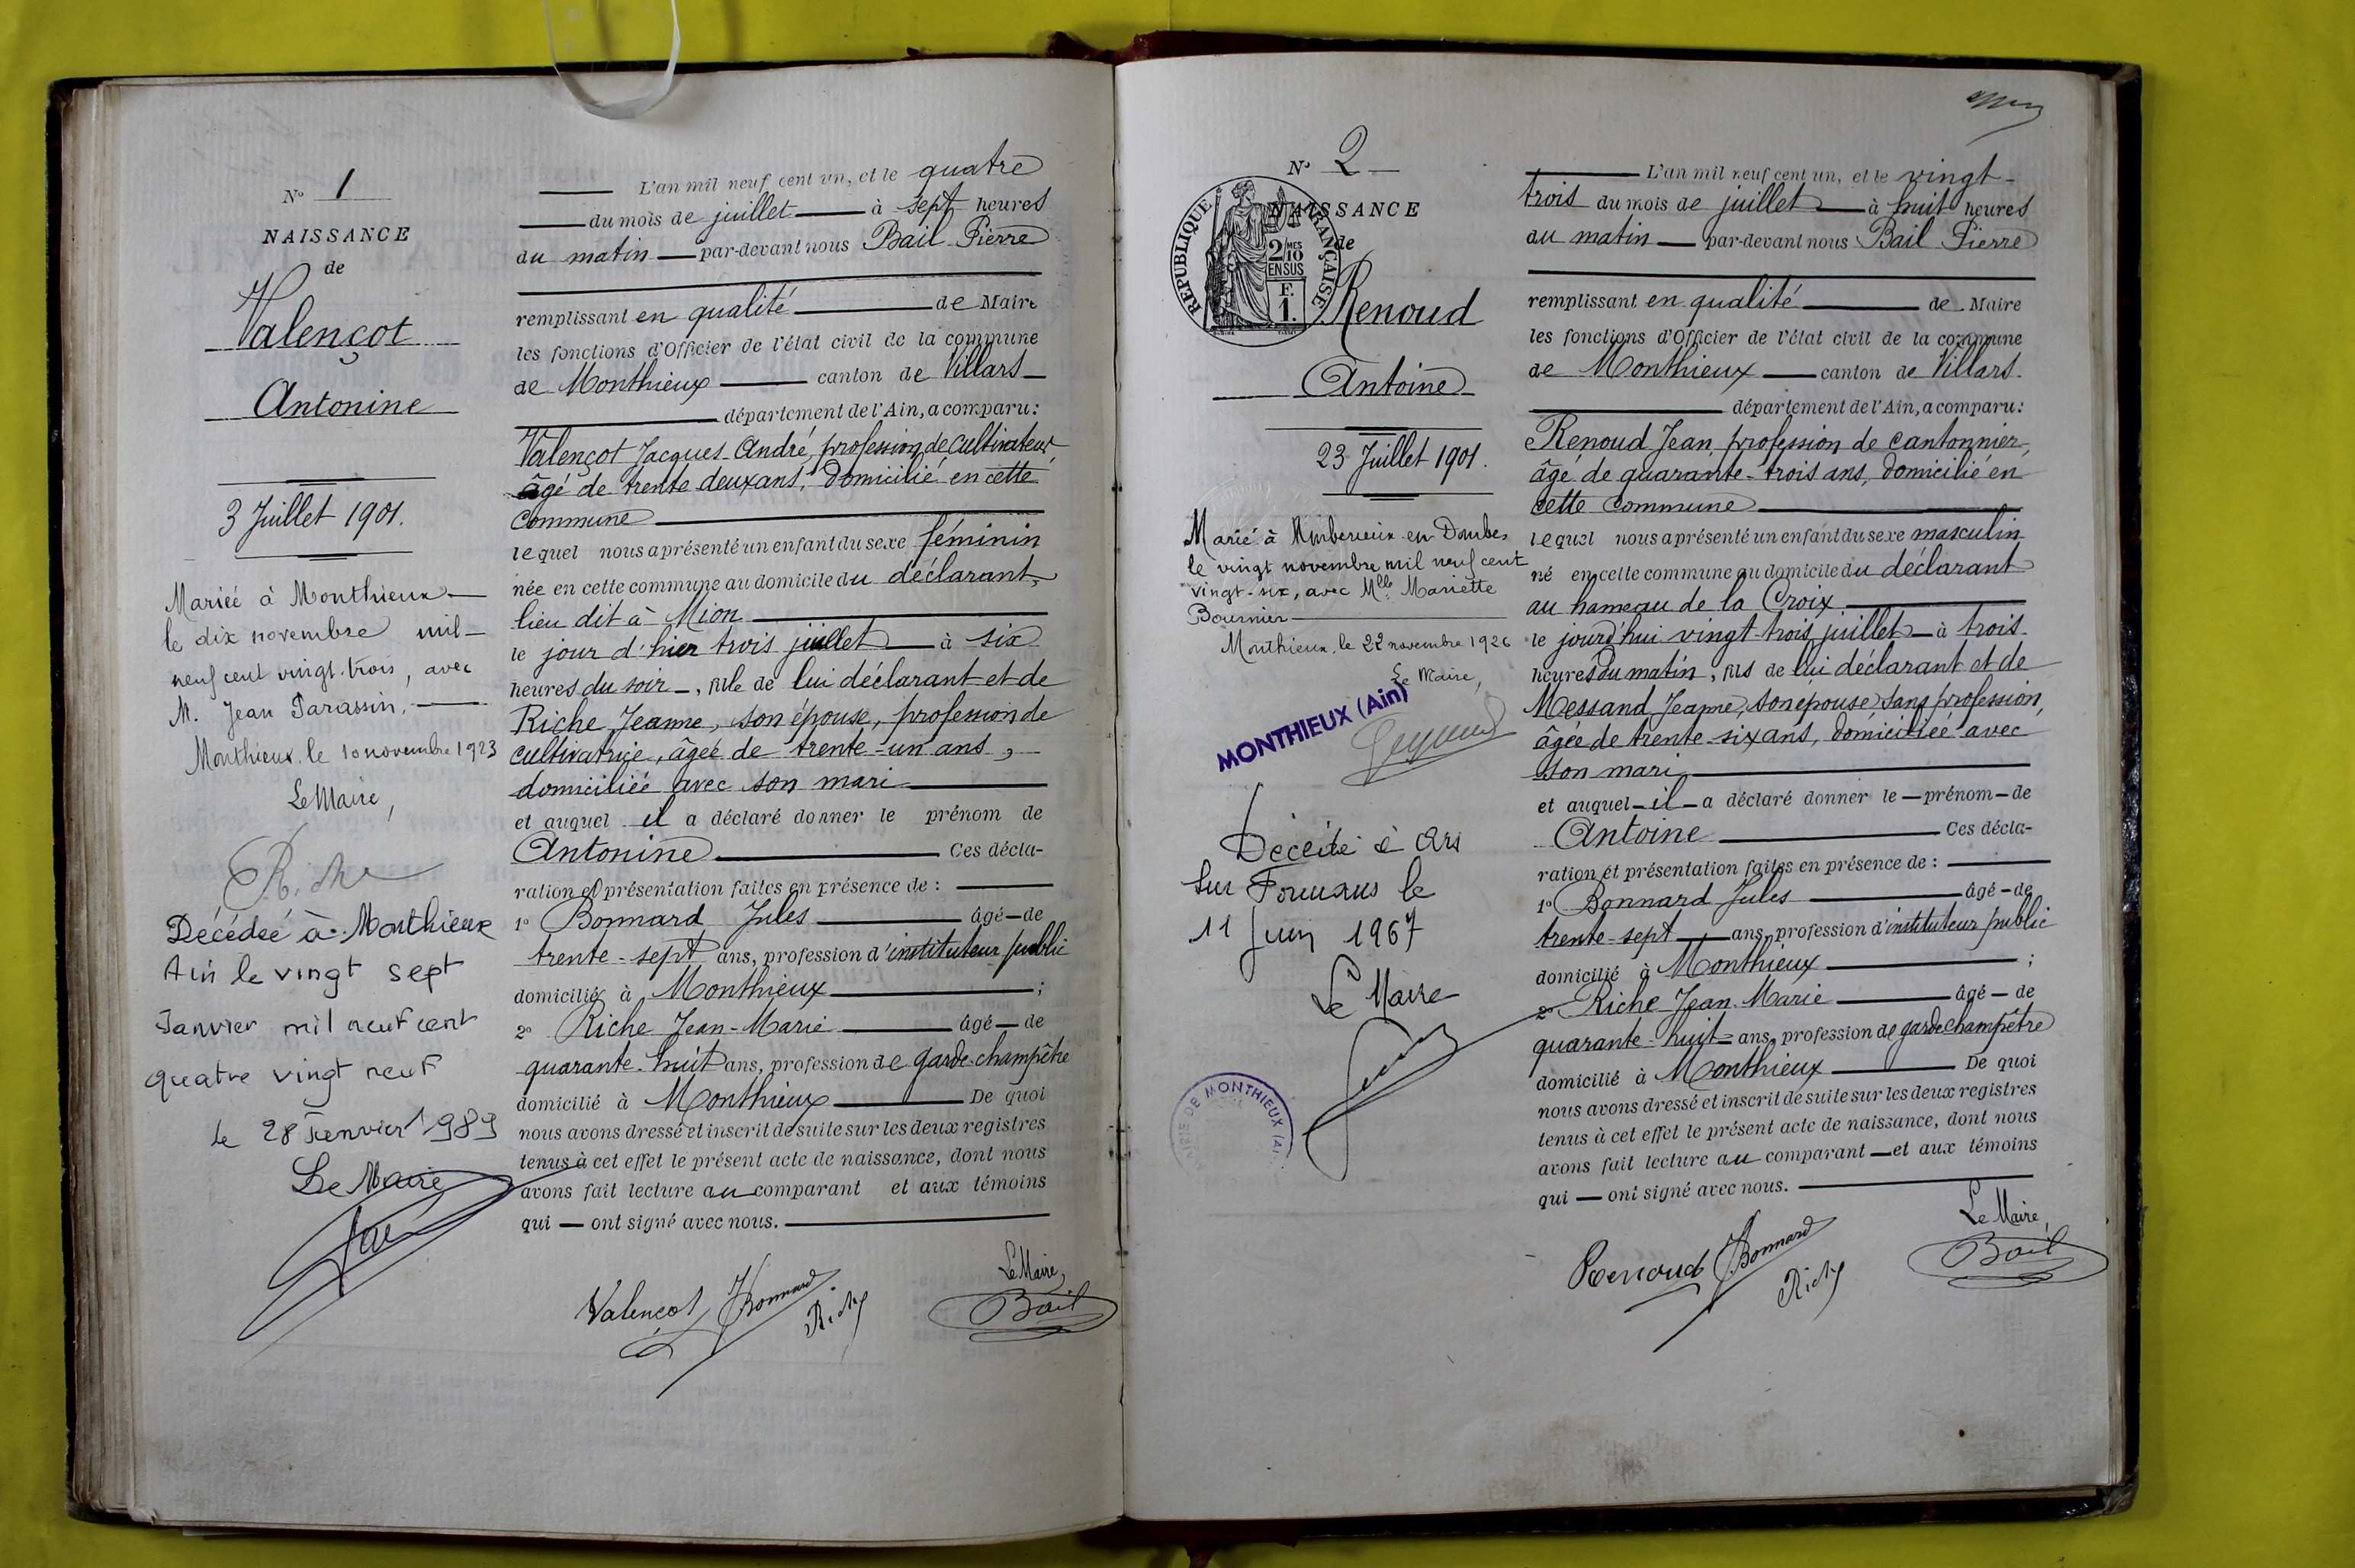 N° 1
NAISSANCE
de
Valençot
Antonine
3 Juillet 1901.
Mariée à Monthieux
le dix novembre mil
neuf cent vingt-trois, avec
M. Jean Parassin.
Monthieux le 10 novembre 1923
Le Maire,
Riche
Décédée à Monthieux
Ain le vingt sept
Janvier mil neuf cent
quatre vingt neuf
le 28 Janvier 1989
Le Maire
L'an mil neuf cent un, et le quatre
du mois de juillet à sept heures
du matin par-devant nous Bail Pierre
remplissant en qualité de Maire
les fonctions d'Officier de l'état civil de la commune
de Monthieux canton de Villars
département de l'Ain, a comparu:
Valençot Jacques André, profession de cultivateur,
âgé de trente deux ans, domicilié en cette
commune
lequel nous a présenté un enfant du sexe féminin
née en cette commune au domicile du déclarant,
lieu dit à Mion
le jour d'hier trois juillet à six
heures du soir, fille de lui déclarant et de
Riche Jeanne, son épouse, profession de
cultivatrice, âgée de trente-un ans,
domiciliée avec son mari
et auquel il a déclaré donner le prénom de
Antonine Ces décla-
ration et présentation faites en présence de :
1° Bonnard Jules âgé de
trente-sept ans, profession d'instituteur public
domicilié à Monthieux ;
2° Riche Jean-Marie âgé de
quarante-huit ans, profession de garde-champêtre
domicilié à Monthieux De quoi
nous avons dressé et inscrit de suite sur les deux registres
tenus à cet effet le présent acte de naissance, dont nous
avons fait lecture au comparant et aux témoins
qui ont signé avec nous.
Le Maire,
Valençot J Bonnard Riche Bail
N° 2
NAISSANCE
de
REPUBLIQUE FRANÇAISE
2 MES
10
EN SUS
F.
1.
Renoud
Antoine
23 Juillet 1901.
Marié à Ambérieux en Dombes
le vingt novembre mil neuf cent
vingt-six, avec Mlle Mariette
Bournier
Monthieux, le 22 novembre 1926
Le Maire,
MONTHIEUX (Ain)
Décédé à Ars
sur Formans le
11 Juin 1967
Le Maire
MAIRIE DE MONTHIEUX
L'an mil neuf cent un, et le vingt-
trois du mois de juillet à huit heures
du matin par-devant nous Bail Pierre
remplissant en qualité de Maire
les fonctions d'Officier de l'état civil de la commune
de Monthieux canton de Villars.
département de l'Ain, a comparu:
Renoud Jean, profession de cantonnier,
âgé de quarante-trois ans, domicilié en
cette commune
lequel nous a présenté un enfant du sexe masculin
né en cette commune au domicile du déclarant
au hameau de la Croix
le jourd'hui vingt-trois juillet à trois
heures du matin, fils de lui déclarant et de
Messand Jeanne, son épouse, sans profession,
âgée de trente-six ans, domiciliée avec
son mari
et auquel il a déclaré donner le prénom de
Antoine Ces décla-
ration et présentation faites en présence de :
1° Bonnard Jules âgé de
trente-sept ans, profession d'instituteur public
domicilié à Monthieux ;
2° Riche Jean-Marie âgé de
quarante-huit ans, profession de garde champêtre
domicilié à Monthieux De quoi
nous avons dressé et inscrit de suite sur les deux registres
tenus à cet effet le présent acte de naissance, dont nous
avons fait lecture au comparant et aux témoins
qui ont signé avec nous.
Le Maire,
Renoud J Bonnard Riche Bail